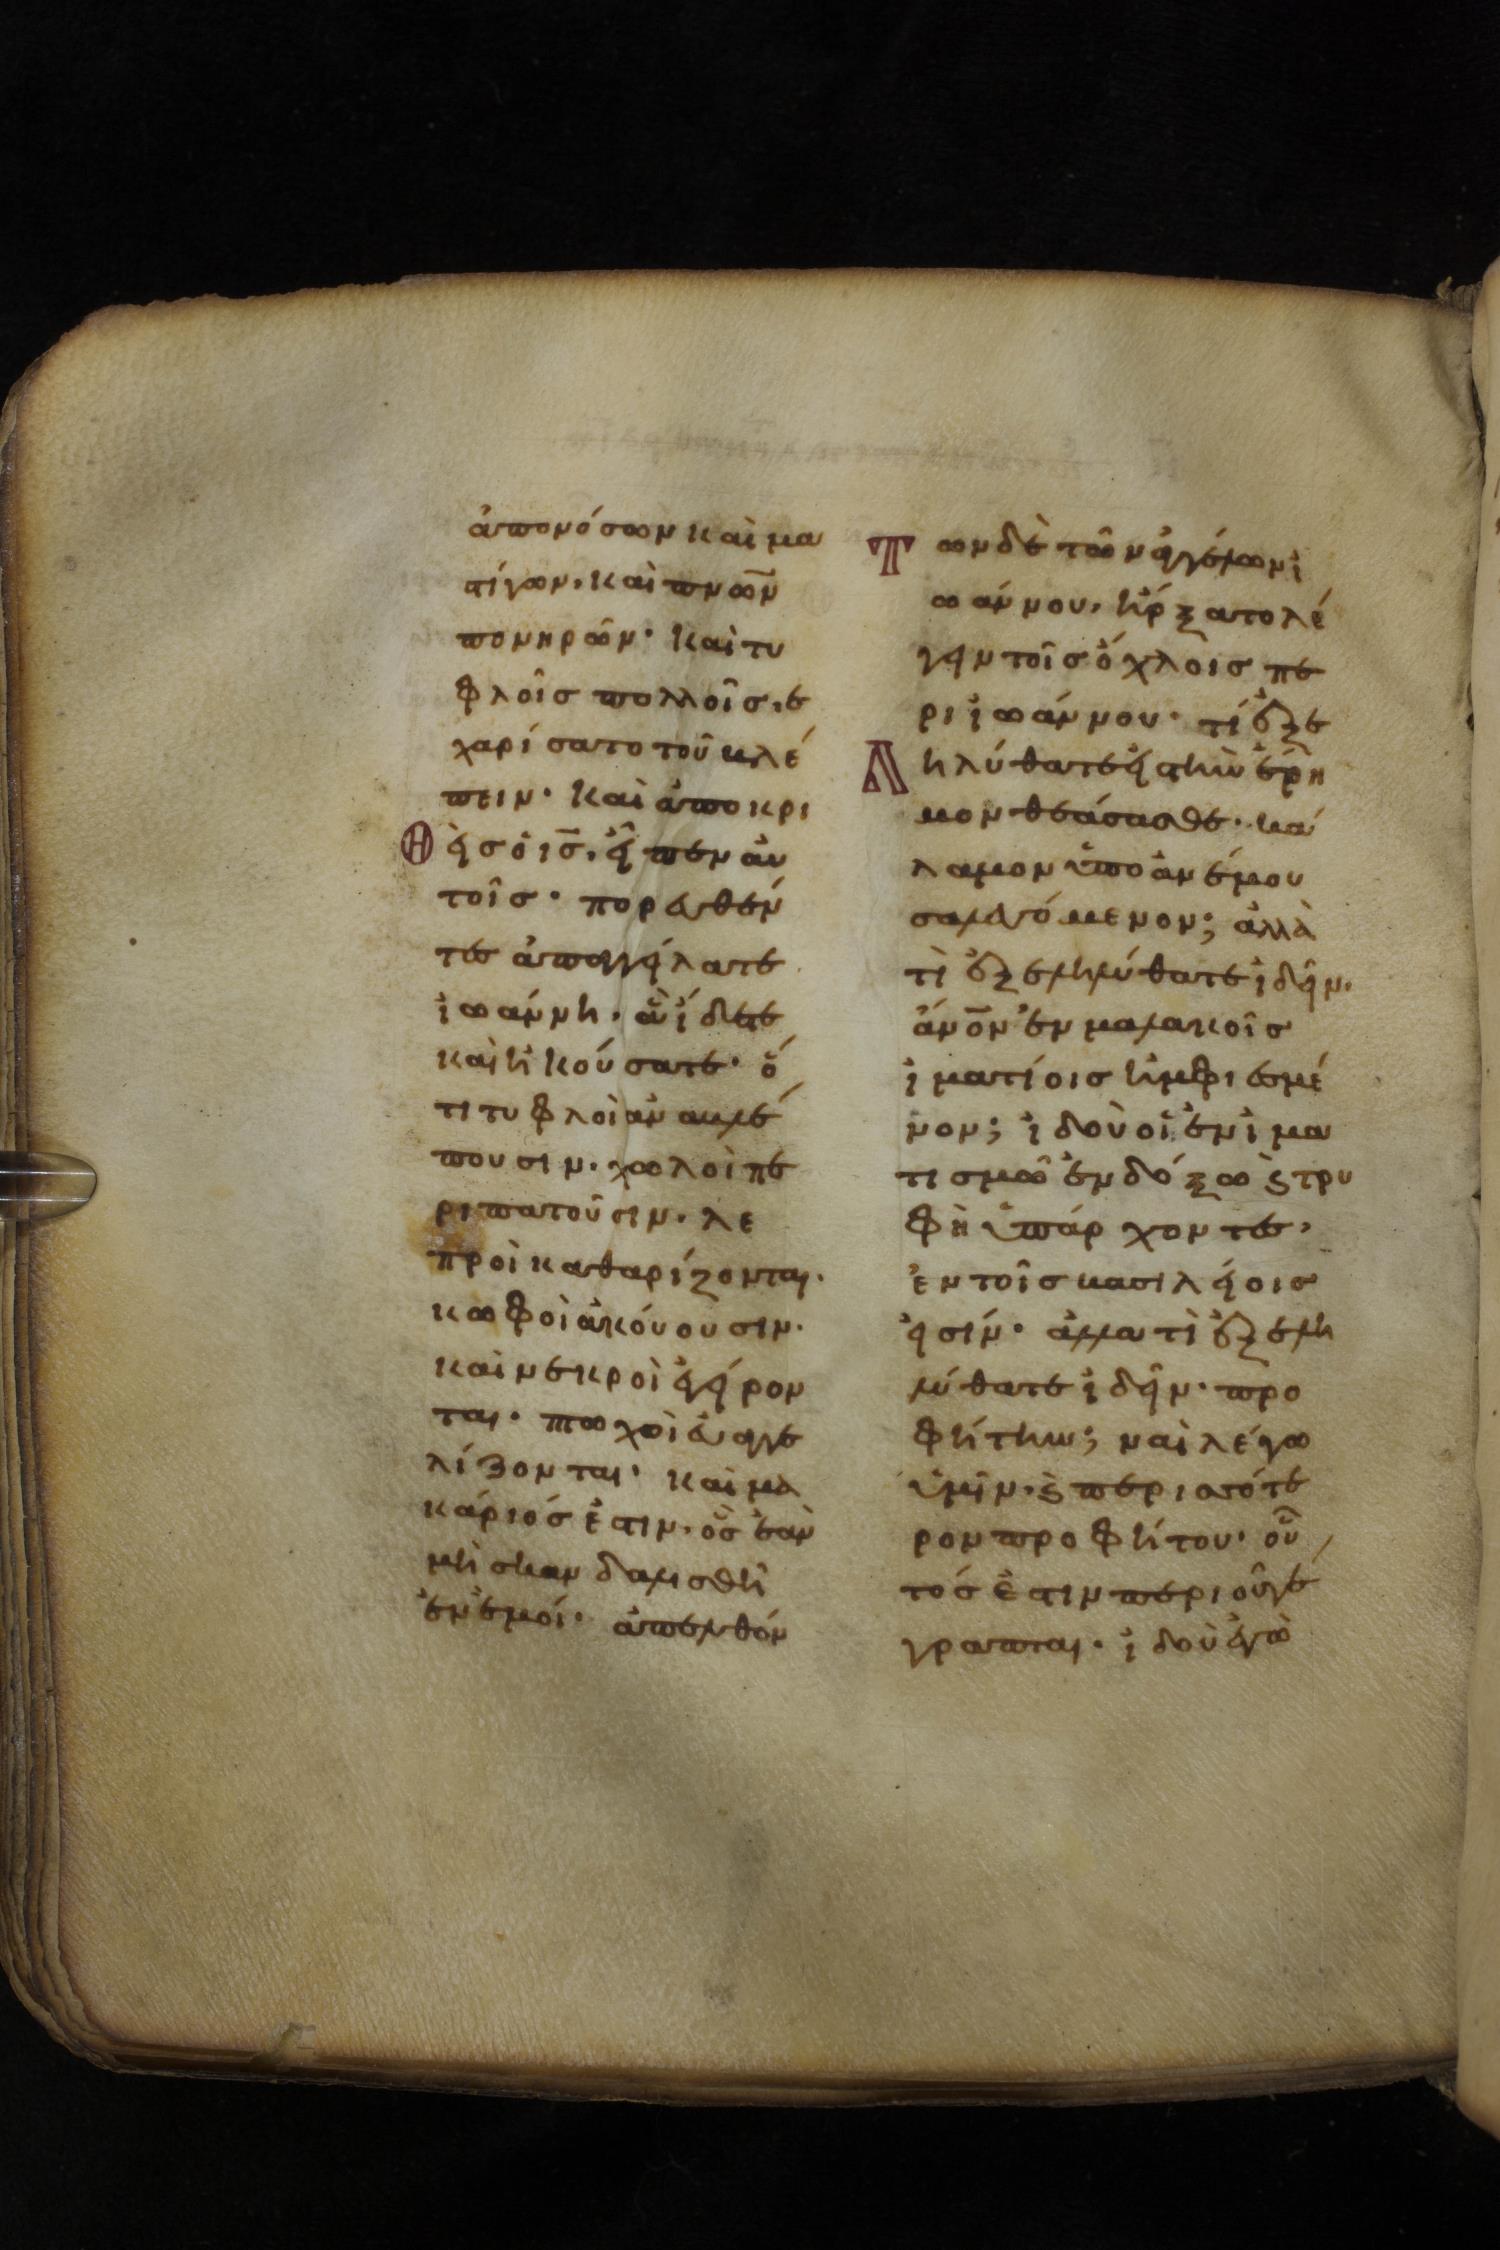 ἀπὸ νόσων καὶ μα
στίγων, καὶ πνω̅ν
πονηρῶν· καὶ τυ
φλοῖς πολλοῖς, ἐ
χαρίσατο τοῦ βλέ
πειν· καὶ ἀποκρι
Θεὶς ὁ ι̅ς̅, εἶπεν αὐ
τοῖς· πορευθέν
τες ἀπαγγείλατε
ἰωάννη, ἃ εἴδετε
καὶ ἠκούσατε· ὅ
τι τυφλοὶ ἀναβλέ
πουσιν, χωλοὶ πε
ριπατοῦσιν, λε
προὶ καθαρίζονται,
κωφοὶ ἀκούουσιν.
καὶ νεκροὶ ἐγείρον
ται· πτωχοὶ εὐαγγε
λίζονται· καὶ μα
κάριός ἐστιν, ὃς ἐὰν
μὴ σκανδαλισθῆ
ἐν ἐμοί· ἀπελθόν
Των δὲ τῶν ἀγγέλων ἰ
ωάννου, ἤρξατο λέ
γειν τοῖς ὄχλοις πε
ρὶ ἰωάννου· τί ἐξε
Ληλύθατε εἰς τὴν ἔρη
μον θεάσασθε· κά
λαμον ὑπὸ ἀνέμου
σαλευόμενον; ἀλλὰ
τὶ ἐξεληλύθατε ἰδεῖν,
ἄν̅ο̅ν ἐν μαλακοῖς
ἱματίοις ἠμφιεσμέ
νον; ἰδοὺ οἱ ἐν ἱμα
τισμῶ ἐνδόξω ϗ τρυ
φῆ ὑπάρχοντες,
ἐν τοῖς βασιλείοις
εἰσίν· ἀλλα τὶ ἐξελη
λύθατε ἰδεῖν· προ
φήτην; ναὶ λέγω
ὑμῖν, ϗ περισσότε
ρον προφήτου· οὗ
τός ἐστιν περὶ οὗ γέ
γραπται, ἰδοὺ ἐγὼ